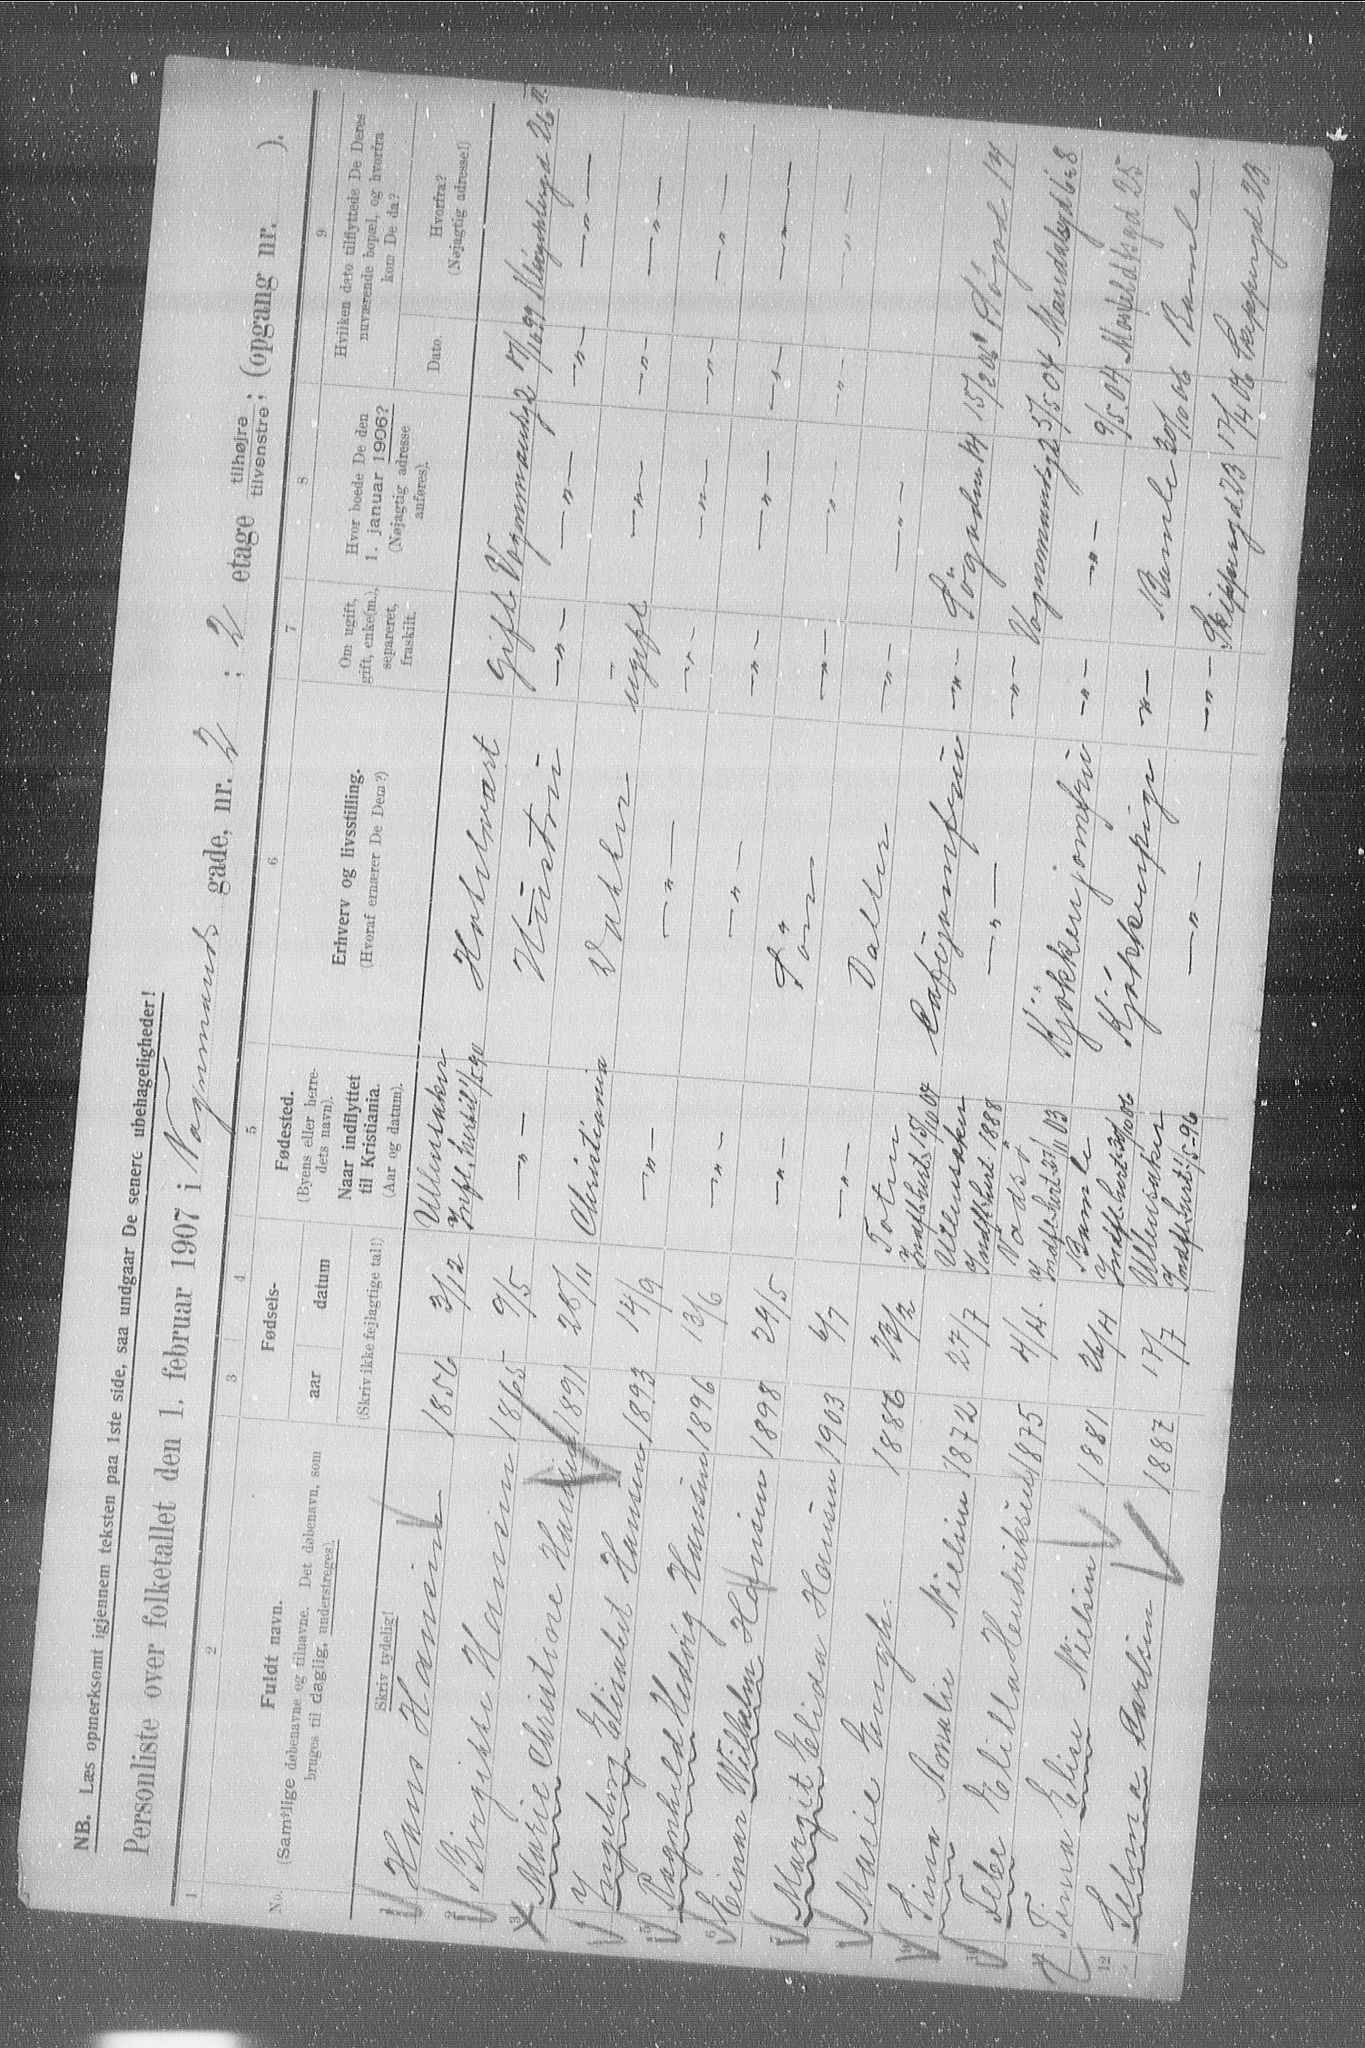 NB. Læs opmerksomt igjennem teksten paa 1ste side, saa undgaar De senere ubehageligheder!
Personliste over folketallet den 1. februar 1907 i Vognmands gade, nr. 2 ; 2 etage tilhøjre tilvenstre; (opgang nr. ).
1 2 3 4 5 6 7 8 9
No.
Fuldt navn.
(Samtlige døbenavne og tilnavne. Det døbenavn, som
bruges til daglig, understreges).
Skriv tydelig!
Fødsels-
aar datum
(Skriv ikke fejlagtige tal!)
Fødested.
(Byens eller herre-
dets navn).
Naar indflyttet
til Kristiania.
(Aar og datum).
Erhverv og livsstilling.
(Hvoraf ernærer De Dem?)
Om ugift,
gift, enke(m.),
separeret,
fraskilt.
Hvor boede De den
1. januar 1906?
(Nøjagtig adresse
anføres).
Hvilken dato tilflyttede De Deres
nuværende bopæl, og hvorfra
kom De da?
Dato.
Hvorfra?
(Nøjagtig adresse!)
1 Hans Hansen 1856 3/12 Ullensaker Hotelvært Gift Vognmandsg 2
2 Birgitte Hansen 1865 9/5 —„— Hustru —„— —„— —„— —„—
3 Marie Christine Hansen 1891 28/11 Christiania Datter ugift —„— —„— —„—
Ingeborg Elisabet Hansen 1893 14/9 —„— —„— —„— —„— —„— —„—
5 Ragnhild Hedvig Hansen 1896 13/6 —„— —„— —„— —„— —„— —„—
6 Einar Wilhelm Hansen 1898 29/5 —„— Søn —„— —„— —„— —„—
7 Margit Elida Hansen 1903 6/7 —„— Datter —„— —„—
Marie Engh. 1886 23/2 Toten Cafejomfru —„— Søgaden 14 15/2 06 Søgd 14
Tina Amalie Nielsen 1872 27/7 Ullensaker Indfl. hert. 1888 —„— —„— Vognmandsg 2 3/5 04
1875 4/4. Kjøkkenjomfru —„— —„— 9/5 04
Tinna Elise Nielsen 1881 26/4 Bamle Kjøkkenpige —„— Bamle 30/10 06 Bamle
12 Selma Carlsen 1887 17/7 Ullensaker —„— —„— Skippergd 23 17/4 06 Skippergd 23